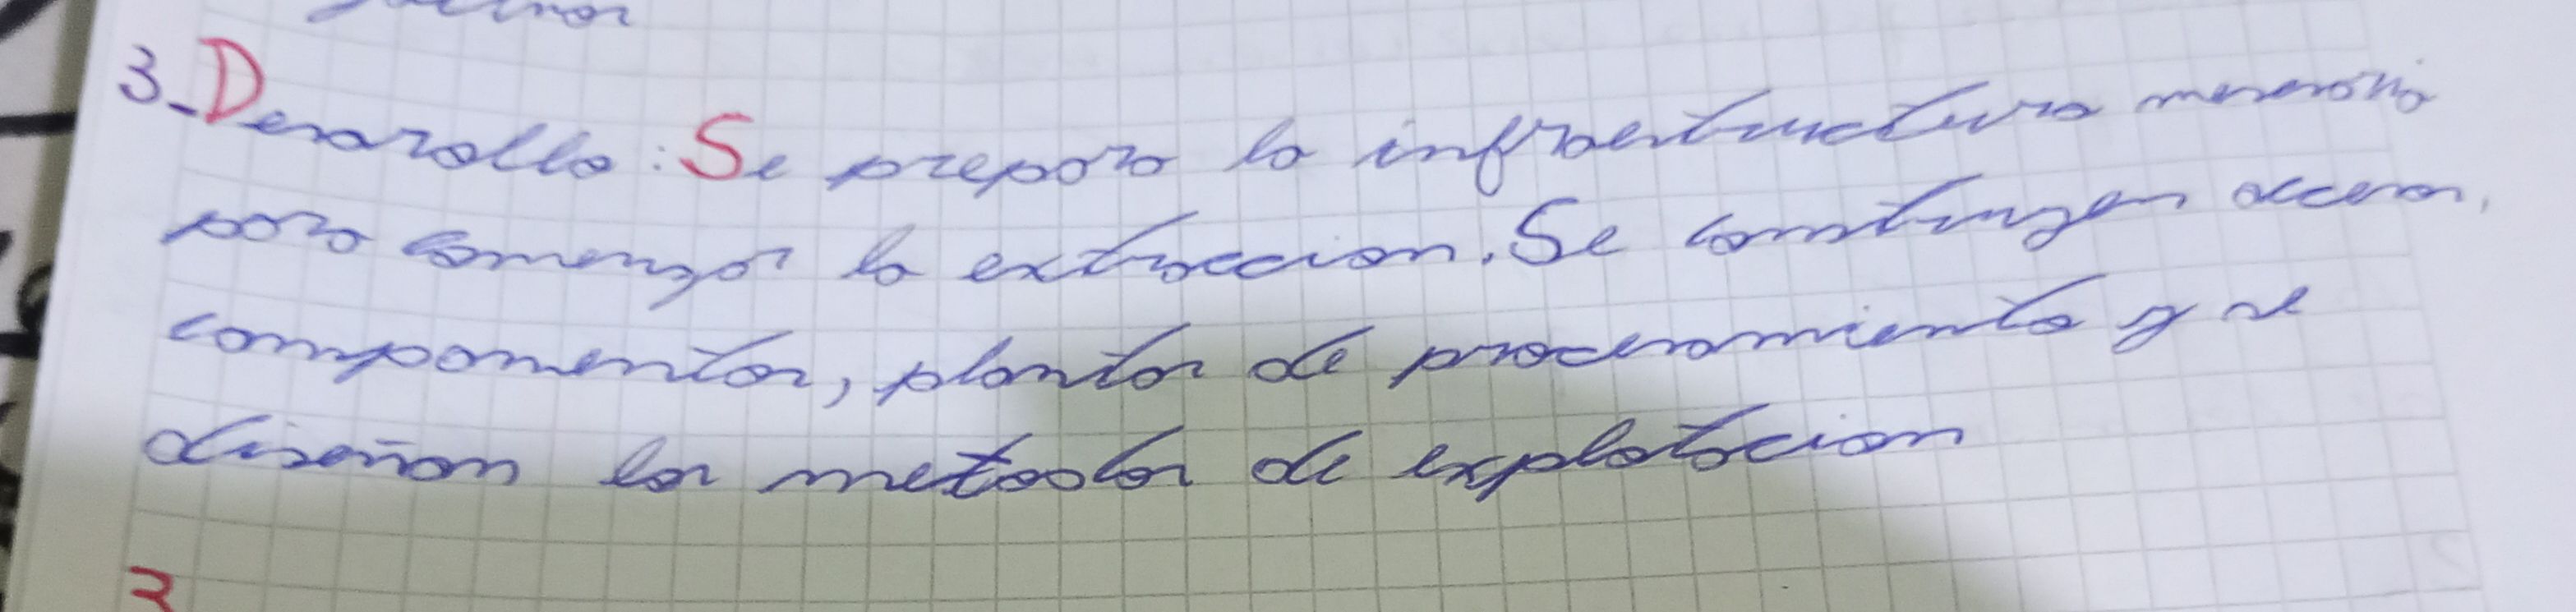 3_Desarollo: Se prepara la infraestructura necesaria
para comenzar la extraccion. Se construyen accesos,
campamentos, plantas de procesamiento y se
diseñan los metodos de explotacion